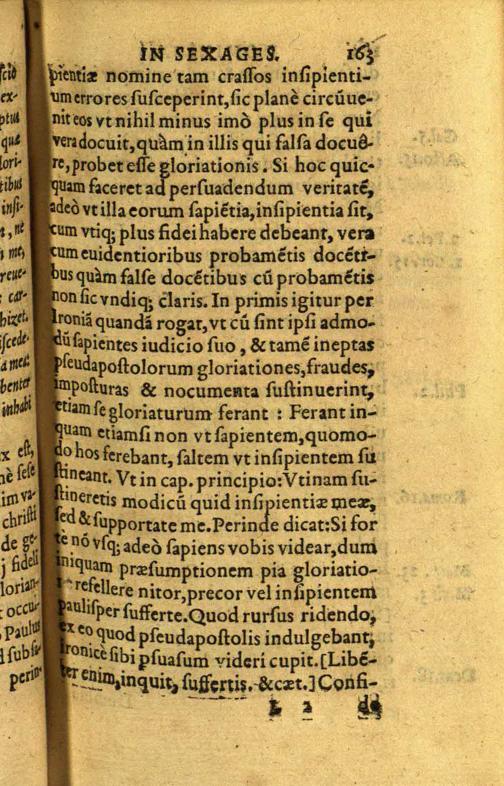 IN SEXAGES. 163
pientiæ nomine tam crassos insipienti-
um errores susceperint, sic planè circũue-
nit eos vt nihil minus imò plus in se qui
vera docuit, quàm in illis qui falsa docuê-
re, probet esse gloriationis. Si hoc quic-
quam faceret ad persuadendum veritatẽ,
adeò vt illa eorum sapiẽtia, insipientia sit,
cum vtiq; plus fidei habere debeant, vera
cum euidentioribus probamẽtis docẽti-
bus quàm false docẽtibus cũ probamẽtis
non sic vndiq; claris. In primis igitur per
Ironiã quandã rogat, vt cũ sint ipsi admo-
dũ sapientes iudicio suo, & tamẽ ineptas
pseudapostolorum gloriationes, fraudes,
imposturas & nocumenta sustinuerint,
etiam se gloriaturum ferant : Ferant in-
quam etiamsi non vt sapientem, quomo-
do hos ferebant, saltem vt insipientem su
stineant. Vt in cap. principio: Vtinam su-
stineretis modicũ quid insipientiæ meæ,
sed & supportate me. Perinde dicat: Si for
tè nõ vsq; adeò sapiens vobis videar, dum
iniquam præsumptionem pia gloriatio-
refellere nitor, precor vel insipientem
paulisper sufferte. Quod rursus ridendo,
ex eo quod pseudapostolis indulgebant,
ironicè sibi psuasum videri cupit. [Libẽ-
ter enim, inquit, suffertis. &cæt.] Confi-
L 2 de